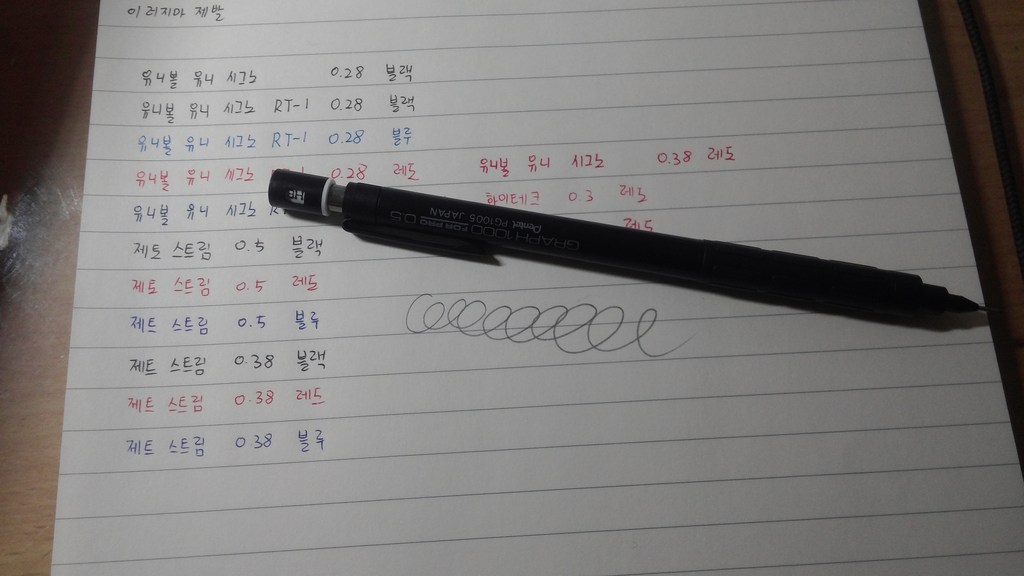 이러지마 제발
유니볼 유니 시그노 0.28 블랙
유니볼 유니 시그노 RT-1 0.28 블랙
유니볼 유니 시그노 RT-1 0.28 블루
유니볼 유니 시그노 -1 0.28 레드
유니볼 유니 시그노 0.38 레드
유니볼 유니 시그노
하이테크 0.3 레드
제트 스트림 0.5 블랙
제트 스트림 0.5 레드
제트 스트림 0.5 블루
제트 스트림 0.38 블랙
제트 스트림 0.38 레드
제트 스트림 0.38 블루
GRAPH 1000 FOR PRO 0.5
Pentel PG1005 JAPAN